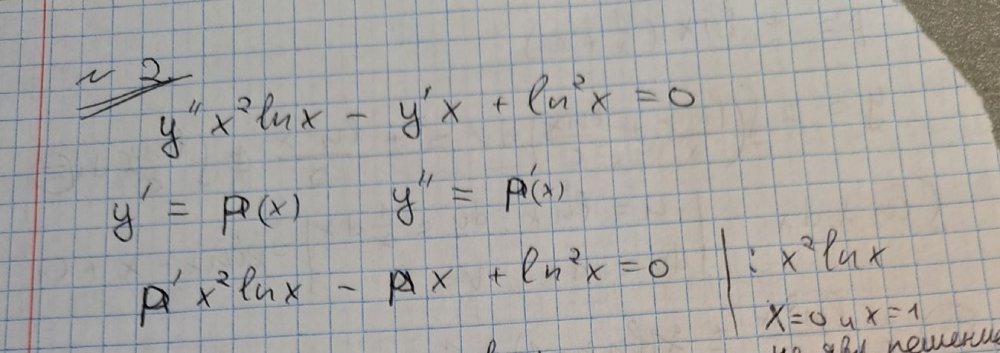 № 2
y'' x² ln x - y' x + ln² x = 0
y' = p(x) y'' = p'(x)
p' x² ln x - p x + ln² x = 0 | : x² ln x
x=0 и x=1
не явл решени